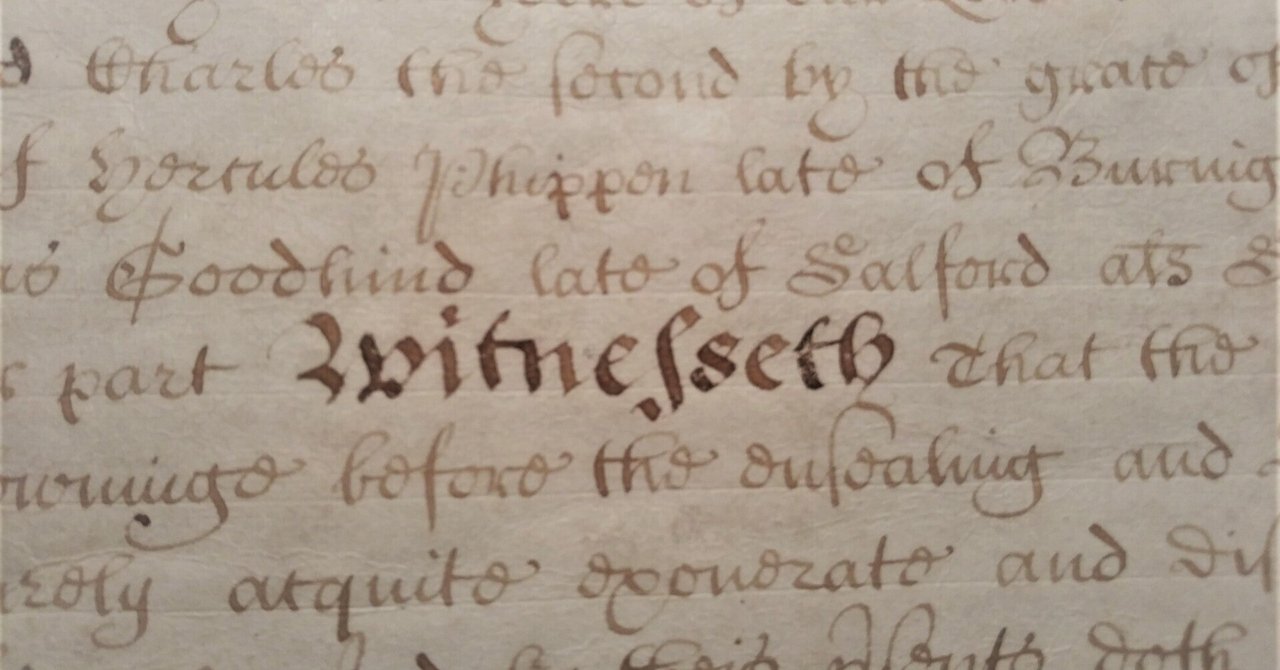 Charles the second by the grace of
Hercules Phippen late of
Goodhind late of Salford als
part Witnesseth That the
before the ensealing and
acquite exonerate and
doth